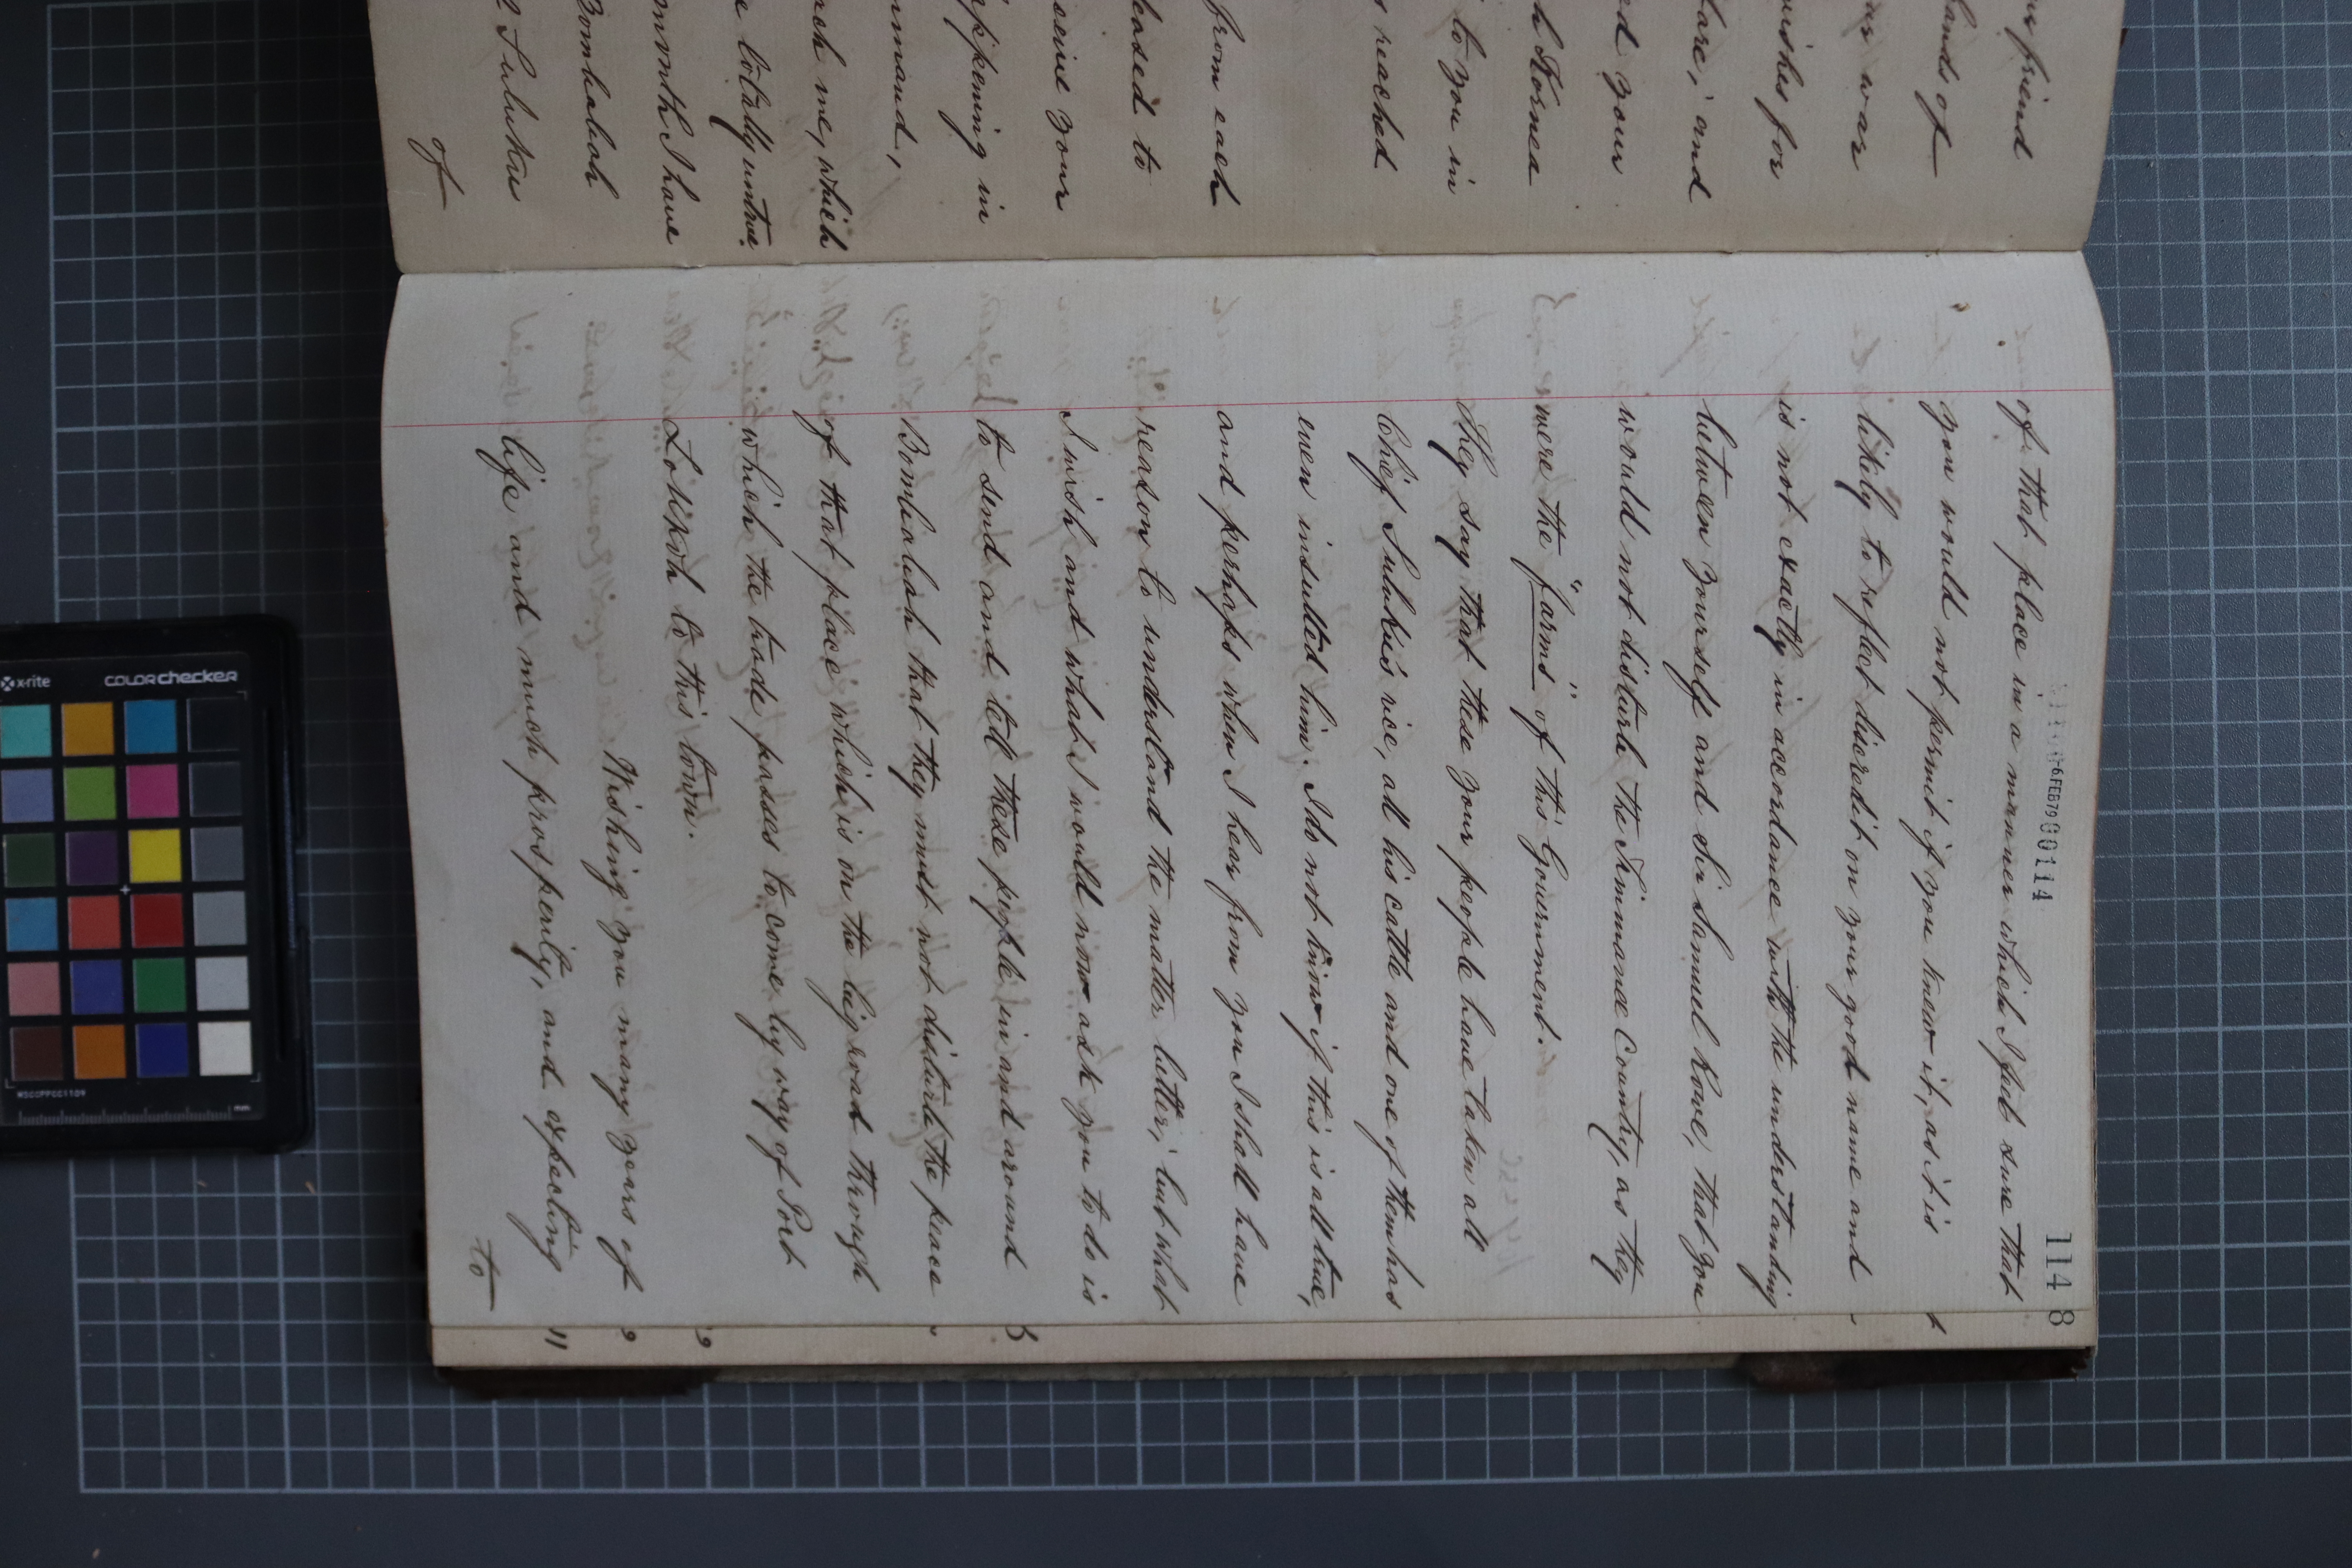 friend
lands of
war
wishes for
fare, and
ed your
h Stornea
to you in
s reached
from each
leased to
ceive your
appening in
mmand,
ach me, which
e totally untrue
month I have
Bombaliah
Suluku
of
-6FEB79 00114
114 8
of that place in a manner which I feel sure that
you would not permit if you knew it, as it is
likely to reflect discredit on your good name and
is not exactly in accordance with the understanding
between yourself and Sir Samuel Rowe, that you
would not disturb the Limmanee Country, as they
were the "farms" of this Government.
They say that these your people have taken all
Chief Suluku's rice, all his cattle and one of them has
even insulted him. I do not know if this is all true,
and perhaps when I hear from you I shall have
reason to understand the matter better, but what
I wish and what I would now ask you to do is
to send and tell these people in and around
Bombaliah that they must not disturb the peace
of that place which is on the high road through
which the trade passes to come by way of Port
Lokkoh to this town.
Wishing you many years of
life and much prosperity, and expecting
to
x-rite
colorchecker
MSCCPPCC1109
mm